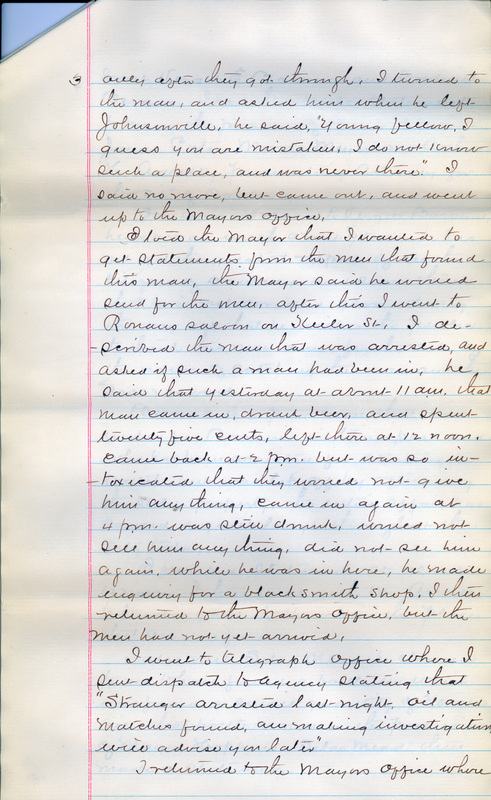 3 only after they got through, I turned to
the man, and asked him when he left
Johnsonville, he said, "Young fellow, I
guess you are mistaken, I do not know
such a place, and was never there." I
said no more, but came out, and went
up to the Mayors office.
I told the Mayor that I wanted to
get statements from the men that found
this man, the Mayor said he would
send for the men, after this I went to
Romans saloon on Keeler St, I de-
-scribed the man that was arrested, and
asked if such a man had been in, he
said that yesterday at about 11 am. that
man came in, drank beer, and spent
twenty five cents, left there at 12 noon.
came back at 2 pm. but was so in-
-toxicated that they would not give
him anything, came in again at
4 pm. was still drunk, would not
sell him anything, did not see him
again, while he was in here, he made
enquiry for a blacksmith shop, I then
returned to the Mayors office, but the
men had not yet arrived,
I went to telegraph office where I
sent dispatch to agency stating that
"Stranger arrested last night, oil and
matches found, am making investigation
will advise you later"
I returned to the Mayors office where